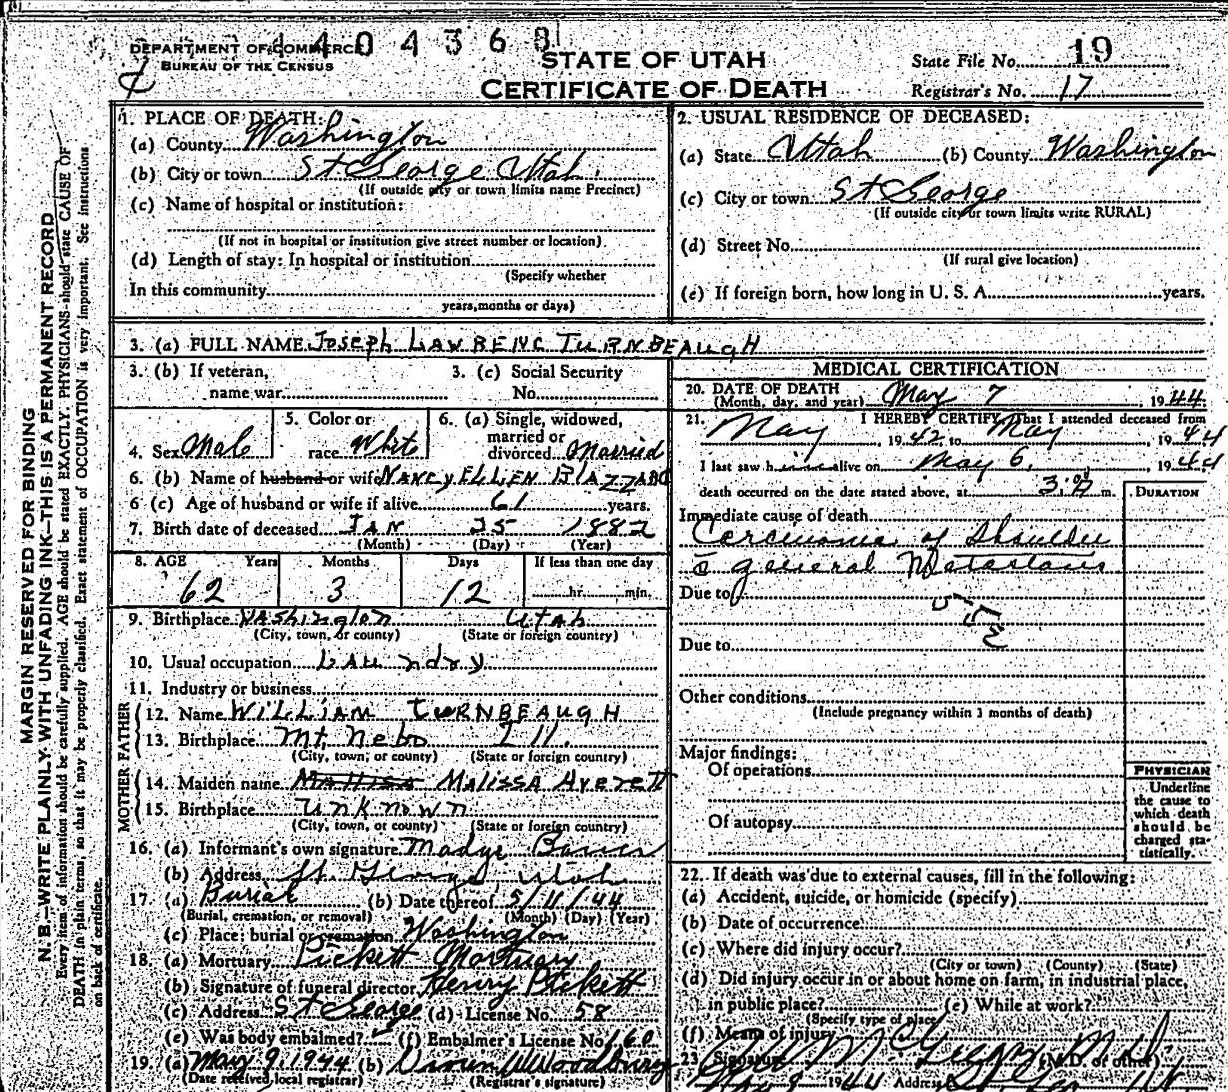 DEPARTMENT OF COMMERCE
BUREAU OF THE CENSUS
1404368
STATE OF UTAH
CERTIFICATE OF DEATH
State File No. 19
Registrar's No. 17
MARGIN RESERVED FOR BINDING
N. B.—WRITE PLAINLY WITH UNFADING INK—THIS IS A PERMANENT RECORD
Every item of information should be carefully supplied. AGE should be stated EXACTLY. PHYSICIANS should state CAUSE OF
DEATH in plain terms, so that it may be properly classified. Exact statement of OCCUPATION is very important. See instructions
on back of certificate.
1. PLACE OF DEATH:
(a) County Washington
(b) City or town St George Utah.
(If outside city or town limits name Precinct)
(c) Name of hospital or institution:
(If not in hospital or institution give street number or location)
(d) Length of stay: In hospital or institution
(Specify whether
In this community
years, months or days)
2. USUAL RESIDENCE OF DECEASED:
(a) State Utah (b) County Washington
(c) City or town St George
(If outside city or town limits write RURAL)
(d) Street No.
(If rural give location)
(e) If foreign born, how long in U. S. A. years.
3. (a) FULL NAME Joseph LAWRENC TURNBEAUGH
3. (b) If veteran, name war
3. (c) Social Security No.
4. Sex Male
5. Color or race White
6. (a) Single, widowed, married or divorced Married
6. (b) Name of husband or wife NANCY ELLEN BLAZZARD
6 (c) Age of husband or wife if alive 61 years.
7. Birth date of deceased JAN 25 1882
(Month) (Day) (Year)
8. AGE Years Months Days If less than one day
62 3 12 hr. min.
9. Birthplace Washington Utah
(City, town, or county) (State or foreign country)
10. Usual occupation Laundry
11. Industry or business
FATHER
12. Name WILLIAM TURNBEAUGH
13. Birthplace Mt. Nebo Ill.
(City, town, or county) (State or foreign country)
MOTHER
14. Maiden name Malissa Averett
15. Birthplace Unknown
(City, town, or county) (State or foreign country)
16. (a) Informant's own signature Madge
(b) Address St. George, Utah
17. (a) Burial (b) Date thereof 5/11/44
(Burial, cremation, or removal) (Month) (Day) (Year)
(c) Place: burial or cremation Washington
18. (a) Mortuary Pickett Mortuary
(b) Signature of funeral director Henry Pickett
(c) Address St George (d) License No. 58
(e) Was body embalmed? (f) Embalmer's License No. 160
19. (a) May 9, 1944 (b) Woodbury
(Date received local registrar) (Registrar's signature)
MEDICAL CERTIFICATION
20. DATE OF DEATH
(Month, day, and year) May 7, 1944.
21. I HEREBY CERTIFY That I attended deceased from
May, 1942, to May, 1944
I last saw him alive on May 6, 1944
death occurred on the date stated above, at 3: m.
DURATION
Immediate cause of death
Carcinoma of Shoulder
c̄ general Metastasis
Due to
55
Due to
Other conditions
(Include pregnancy within 3 months of death)
Major findings:
Of operations
Of autopsy
PHYSICIAN
Underline
the cause to
which death
should be
charged sta-
tistically.
22. If death was due to external causes, fill in the following:
(a) Accident, suicide, or homicide (specify)
(b) Date of occurrence
(c) Where did injury occur?
(City or town) (County) (State)
(d) Did injury occur in or about home on farm, in industrial place,
in public place? (e) While at work?
(Specify type of place)
(f) Means of injury
23. Signature McGregor M.D. (M.D. or other)
1944 Address